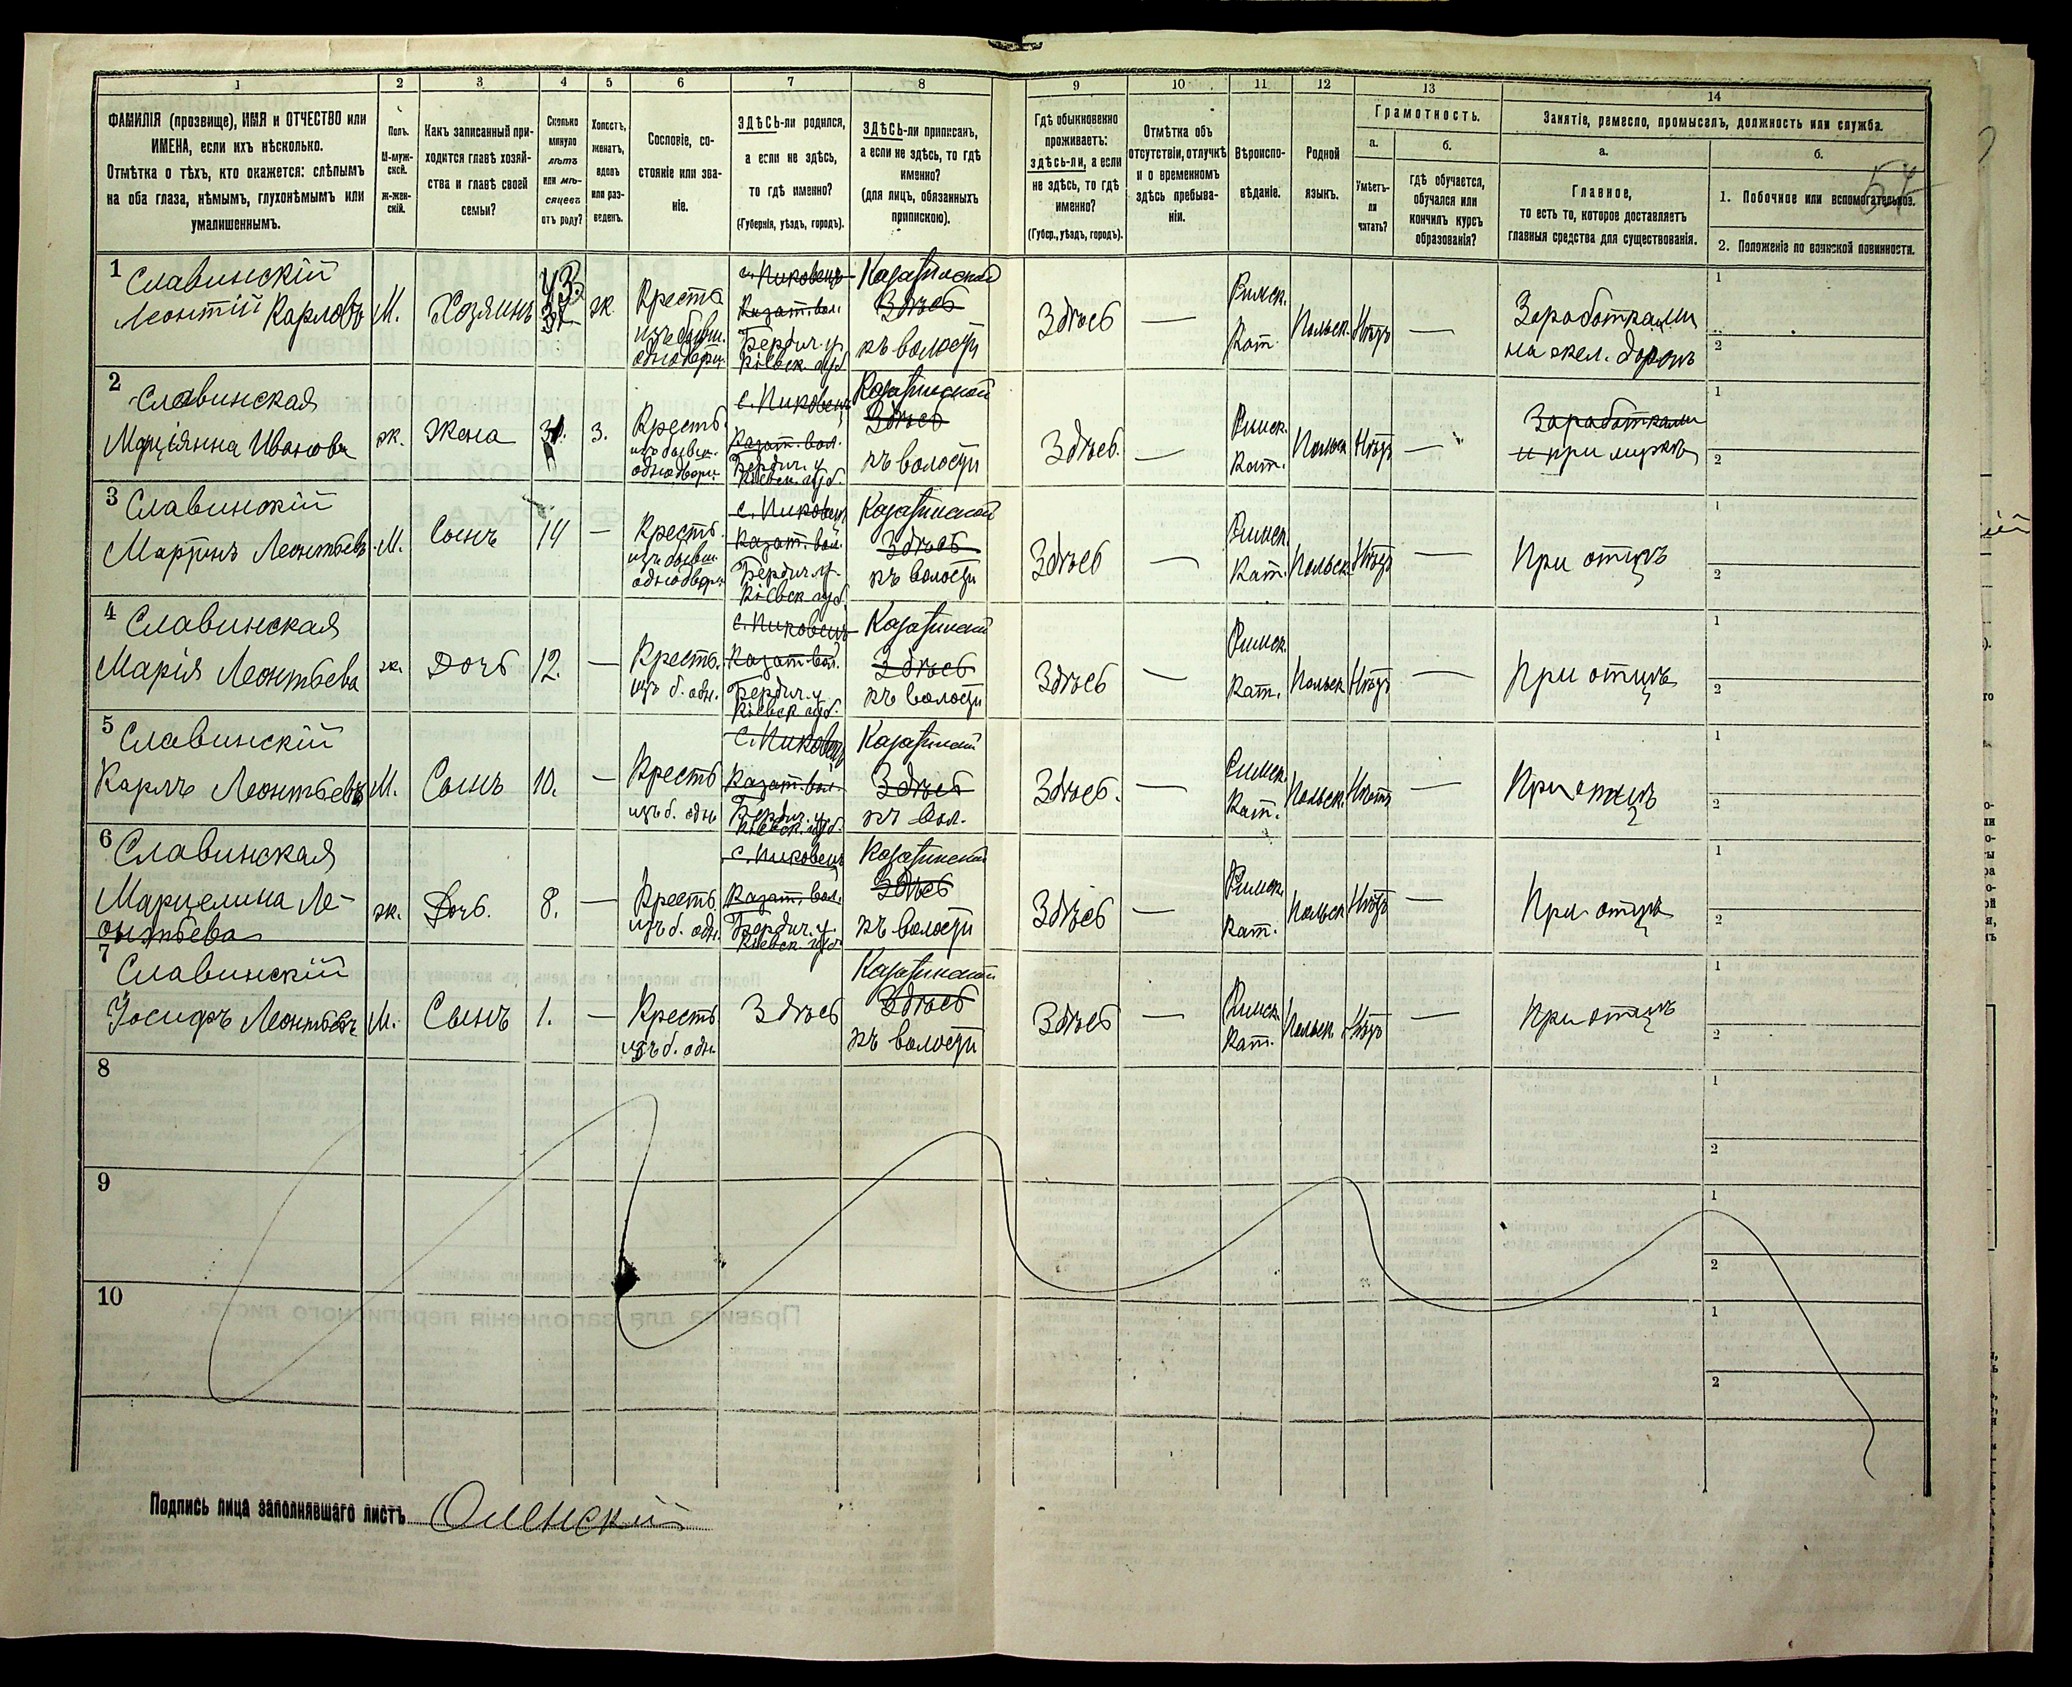 1
2
3
4
5
6
7
8
9
10
11
12
13
14
ФАМИЛІЯ (прозвище), ИМЯ и ОТЧЕСТВО или
ИМЕНА, если ихъ нѣсколько.
Отмѣтка о тѣхъ, кто окажется: слѣпымъ
на оба глаза, нѣмымъ, глухонѣмымъ или
умалишеннымъ.
Полъ.
М-муж-
ской.
Ж-жен-
скій.
Какъ записанный при-
ходится главѣ хозяй-
ства и главѣ своей
семьи?
Сколько
минуло
лѣтъ
или мѣ-
сяцевъ
отъ роду?
Холостъ,
женатъ,
вдовъ
или раз-
веденъ.
Сословіе, со-
стояніе или зва-
ніе.
ЗДѢСЬ-ли родился,
а если не здѣсь,
то гдѣ именно?
(Губернія, уѣздъ, городъ).
ЗДѢСЬ-ли приписанъ,
а если не здѣсь, то гдѣ
именно?
(для лицъ, обязанныхъ
припискою).
Гдѣ обыкновенно
проживаетъ:
здѣсь-ли, а если
не здѣсь, то гдѣ
именно?
(Губер., уѣздъ, городъ).
Отмѣтка объ
отсутствіи, отлучкѣ
и о временномъ
здѣсь пребыва-
ніи.
Вѣроиспо-
вѣданіе.
Родной
языкъ.
Грамотность.
а.
Умѣетъ-
ли
читать?
б.
гдѣ обучается,
обучался или
кончилъ курсъ
образованія?
Занятіе, ремесло, промыселъ, должность или служба.
а.
Главное,
то есть то, которое доставляетъ
главныя средства для существованія.
б.
1. Побочное или вспомогательное.
2. Положеніе по воинской повинности.
1
Славинскій
Леонтій Карловъ
М.
Хозяинъ
43.
ж.
Крестъ.
изъ бывш.
однодворц.
с. Пиковецъ
Казат. вол.
Бердич. у.
Кіевск. губ.
Казатинской
Здѣсь
къ волости
Здѣсь
—
Римск.
Кат.
Польск.
Нѣтъ
—
Заработками
на жел. дорогѣ
1
2
2
Славинская
Марціянна Иванова
ж.
Жена
з.
Крестъ.
изъ бывш.
однодворц.
с. Пиковецъ
Казат. вол.
Бердич. у.
Кіевск. губ.
Казатинской
Здѣсь
къ волости
Здѣсь.
—
Римск.
Кат.
Польск.
Нѣтъ
—
Заработками
и при мужѣ
1
2
3
Славинскій
Мартинъ Леонтьевъ
М.
Сынъ
14
—
Крестъ.
изъ бывш.
однодворц.
с. Пиковецъ
Казат. вол.
Бердич. у.
Кіевск. губ.
Казатинской
Здѣсь
къ волости
Здѣсь
—
Римск.
Кат.
Польск.
Нѣтъ
—
При отцѣ
1
2
4
Славинская
Марія Леонтьева
ж.
Дочь
12.
—
Крестъ.
изъ б. одн.
с. Пиковецъ
Казат. вол.
Бердич. у.
Кіевск. губ.
Казатинской
Здѣсь
къ волости
Здѣсь
—
Римск.
Кат.
Польск.
Нѣтъ
—
При отцѣ
1
2
5
Славинскій
Карлъ Леонтьевъ
М.
Сынъ
10.
—
Крестъ
изъ б. одн.
с. Пиковецъ
Казат. вол.
Бердич. у.
Кіевск. губ.
Казатинской
Здѣсь
къ вол.
Здѣсь.
—
Римск.
Кат.
Польск.
Нѣтъ
—
При отцѣ
1
2
6
Славинская
Марцелина Ле-
онтьева
ж.
Дочь.
8.
—
Крестъ.
изъ б. одн.
с. Пиковецъ
Казат. вол.
Бердич. у.
Кіевск. губ.
Казатинской
Здѣсь
къ волости
Здѣсь
—
Римск.
Кат.
Польск
Нѣтъ
—
При отцѣ
1
2
7
Славинскій
Іосифъ Леонтьевъ
М.
Сынъ
1.
—
Крестъ.
изъ б. одн.
Здѣсь
Казатинской
Здѣсь
къ волости
Здѣсь
—
Римск.
Кат.
Польск.
Нѣтъ
—
При отцѣ
1
2
8
1
2
9
1
2
10
1
2
Подпись лица заполнявшаго листъ